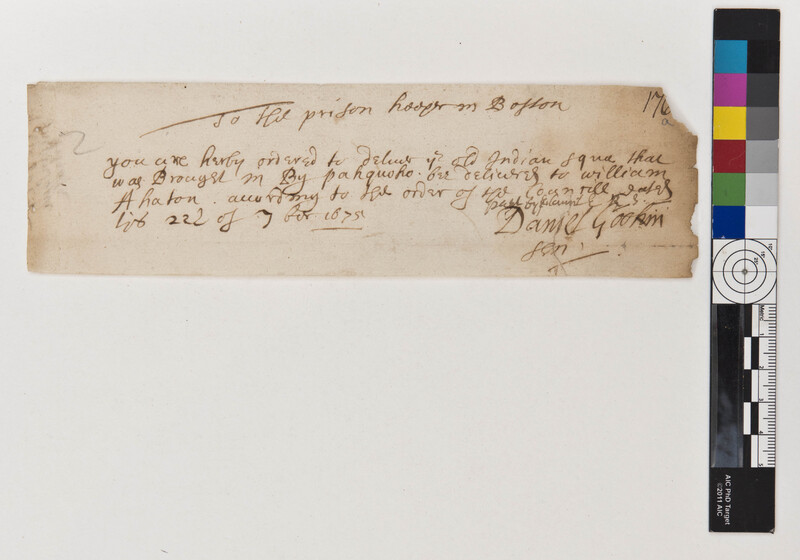 176
a
2
To the prison keeper in Boston
you are herby ordered to deliver yᵉ old Indian squa that
was Brought in By pahquoho. bee delivered to william
Ahaton. according to the order of the Councill dated
this 22d of 7 ber 1675
Daniel Gookin
senʳ
AIC PhD Target
©2011 AIC